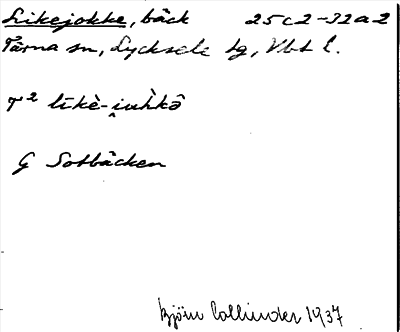 Likejokke, bäck 25C2-I2a2
Tärna sn, Lycksele lg, Vbt l.
T² līkè-i̭uh̀kȏ
G Sotbäcken
Björn Collinder 1937